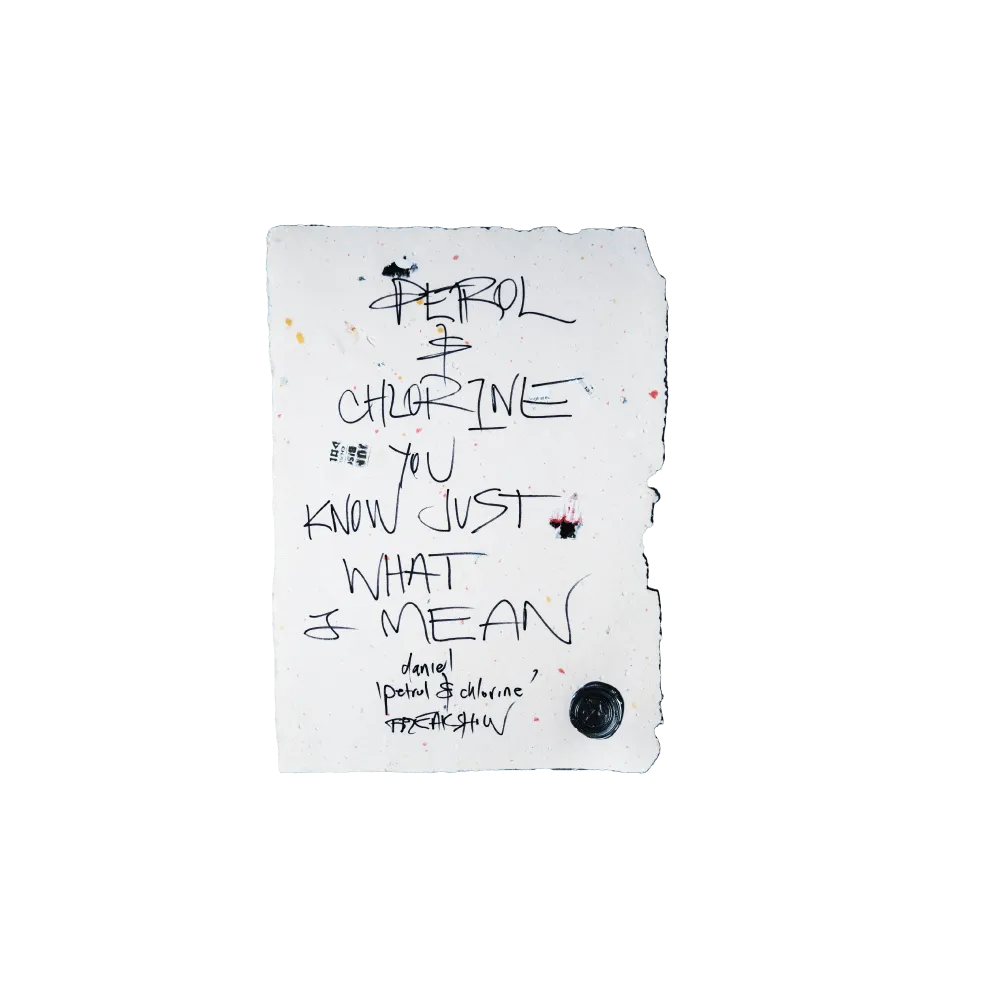 PETROL
&
CHLORINE
YOU
KNOW JUST
WHAT
I MEAN
daniel
'petrol & chlorine'
FREAKSHOW